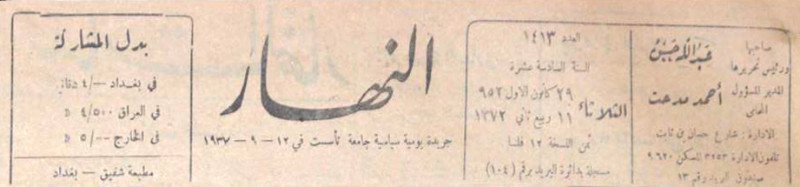 صاحبها
ورئيس تحريرها
عبد الله حسن
المدير المسؤول
المحامي
أحمد مدحت
الادارة : شارع حسان بن ثابت
تلفون الادارة ٣٢٥٣ للسكن ٩٦٢٠
صندوق البريد رقم ١٣
العدد ١٤١٣
السنة السادسة عشرة
الثلاثاء
٢٩ كانون الاول ٩٥٢
١١ ربيع ثاني ١٣٧٢
ثمن النسخة ١٢ فلسا
مسجلة بدائرة البريد برقم (١٠٤)
النهار
جريدة يومية سياسية جامعة تأسست في ١٢ – ٩ – ١٩٣٧
بدل المشاركة
في بغداد –/٤ دنانير
في العراق ٤/٥٠٠ د
في الخارج –/٥ د
مطبعة شفيق – بغداد